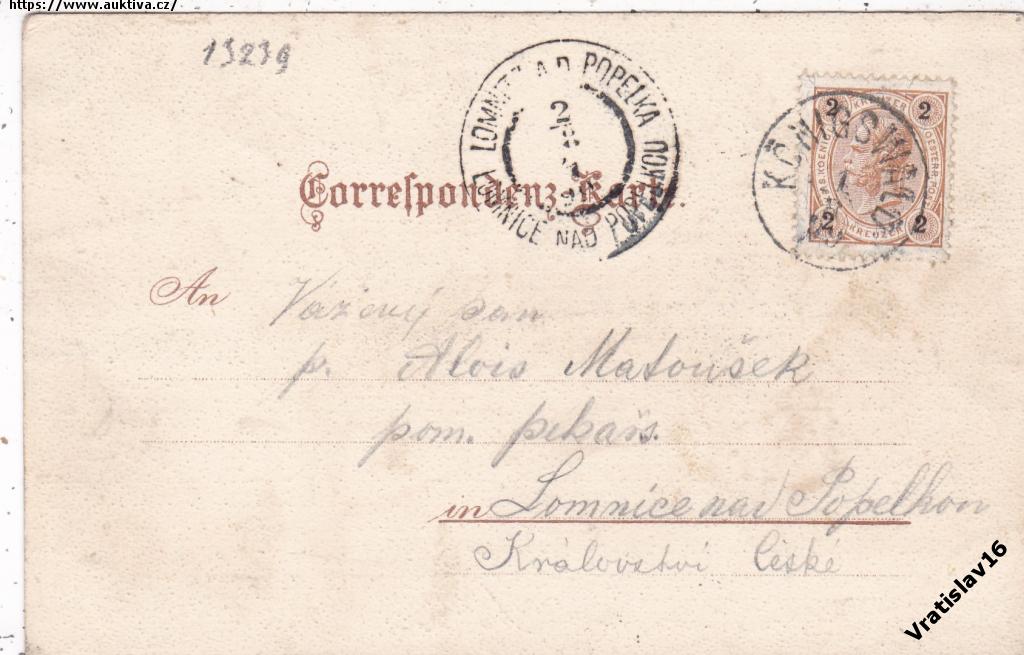 https://www.auktiva.cz/
13239
LOMNITZ A.D. POPELKA
LOMNICE NAD POPELKOU
KÖNIGSWALD
2 KREUZER 2
2 KREUZER 2
Correspondenz-Karte.
An Vážený pan
p. Alois Matoušek
pom. pekařs.
in Lomnice nad Popelkou
Království České
Vratislav16